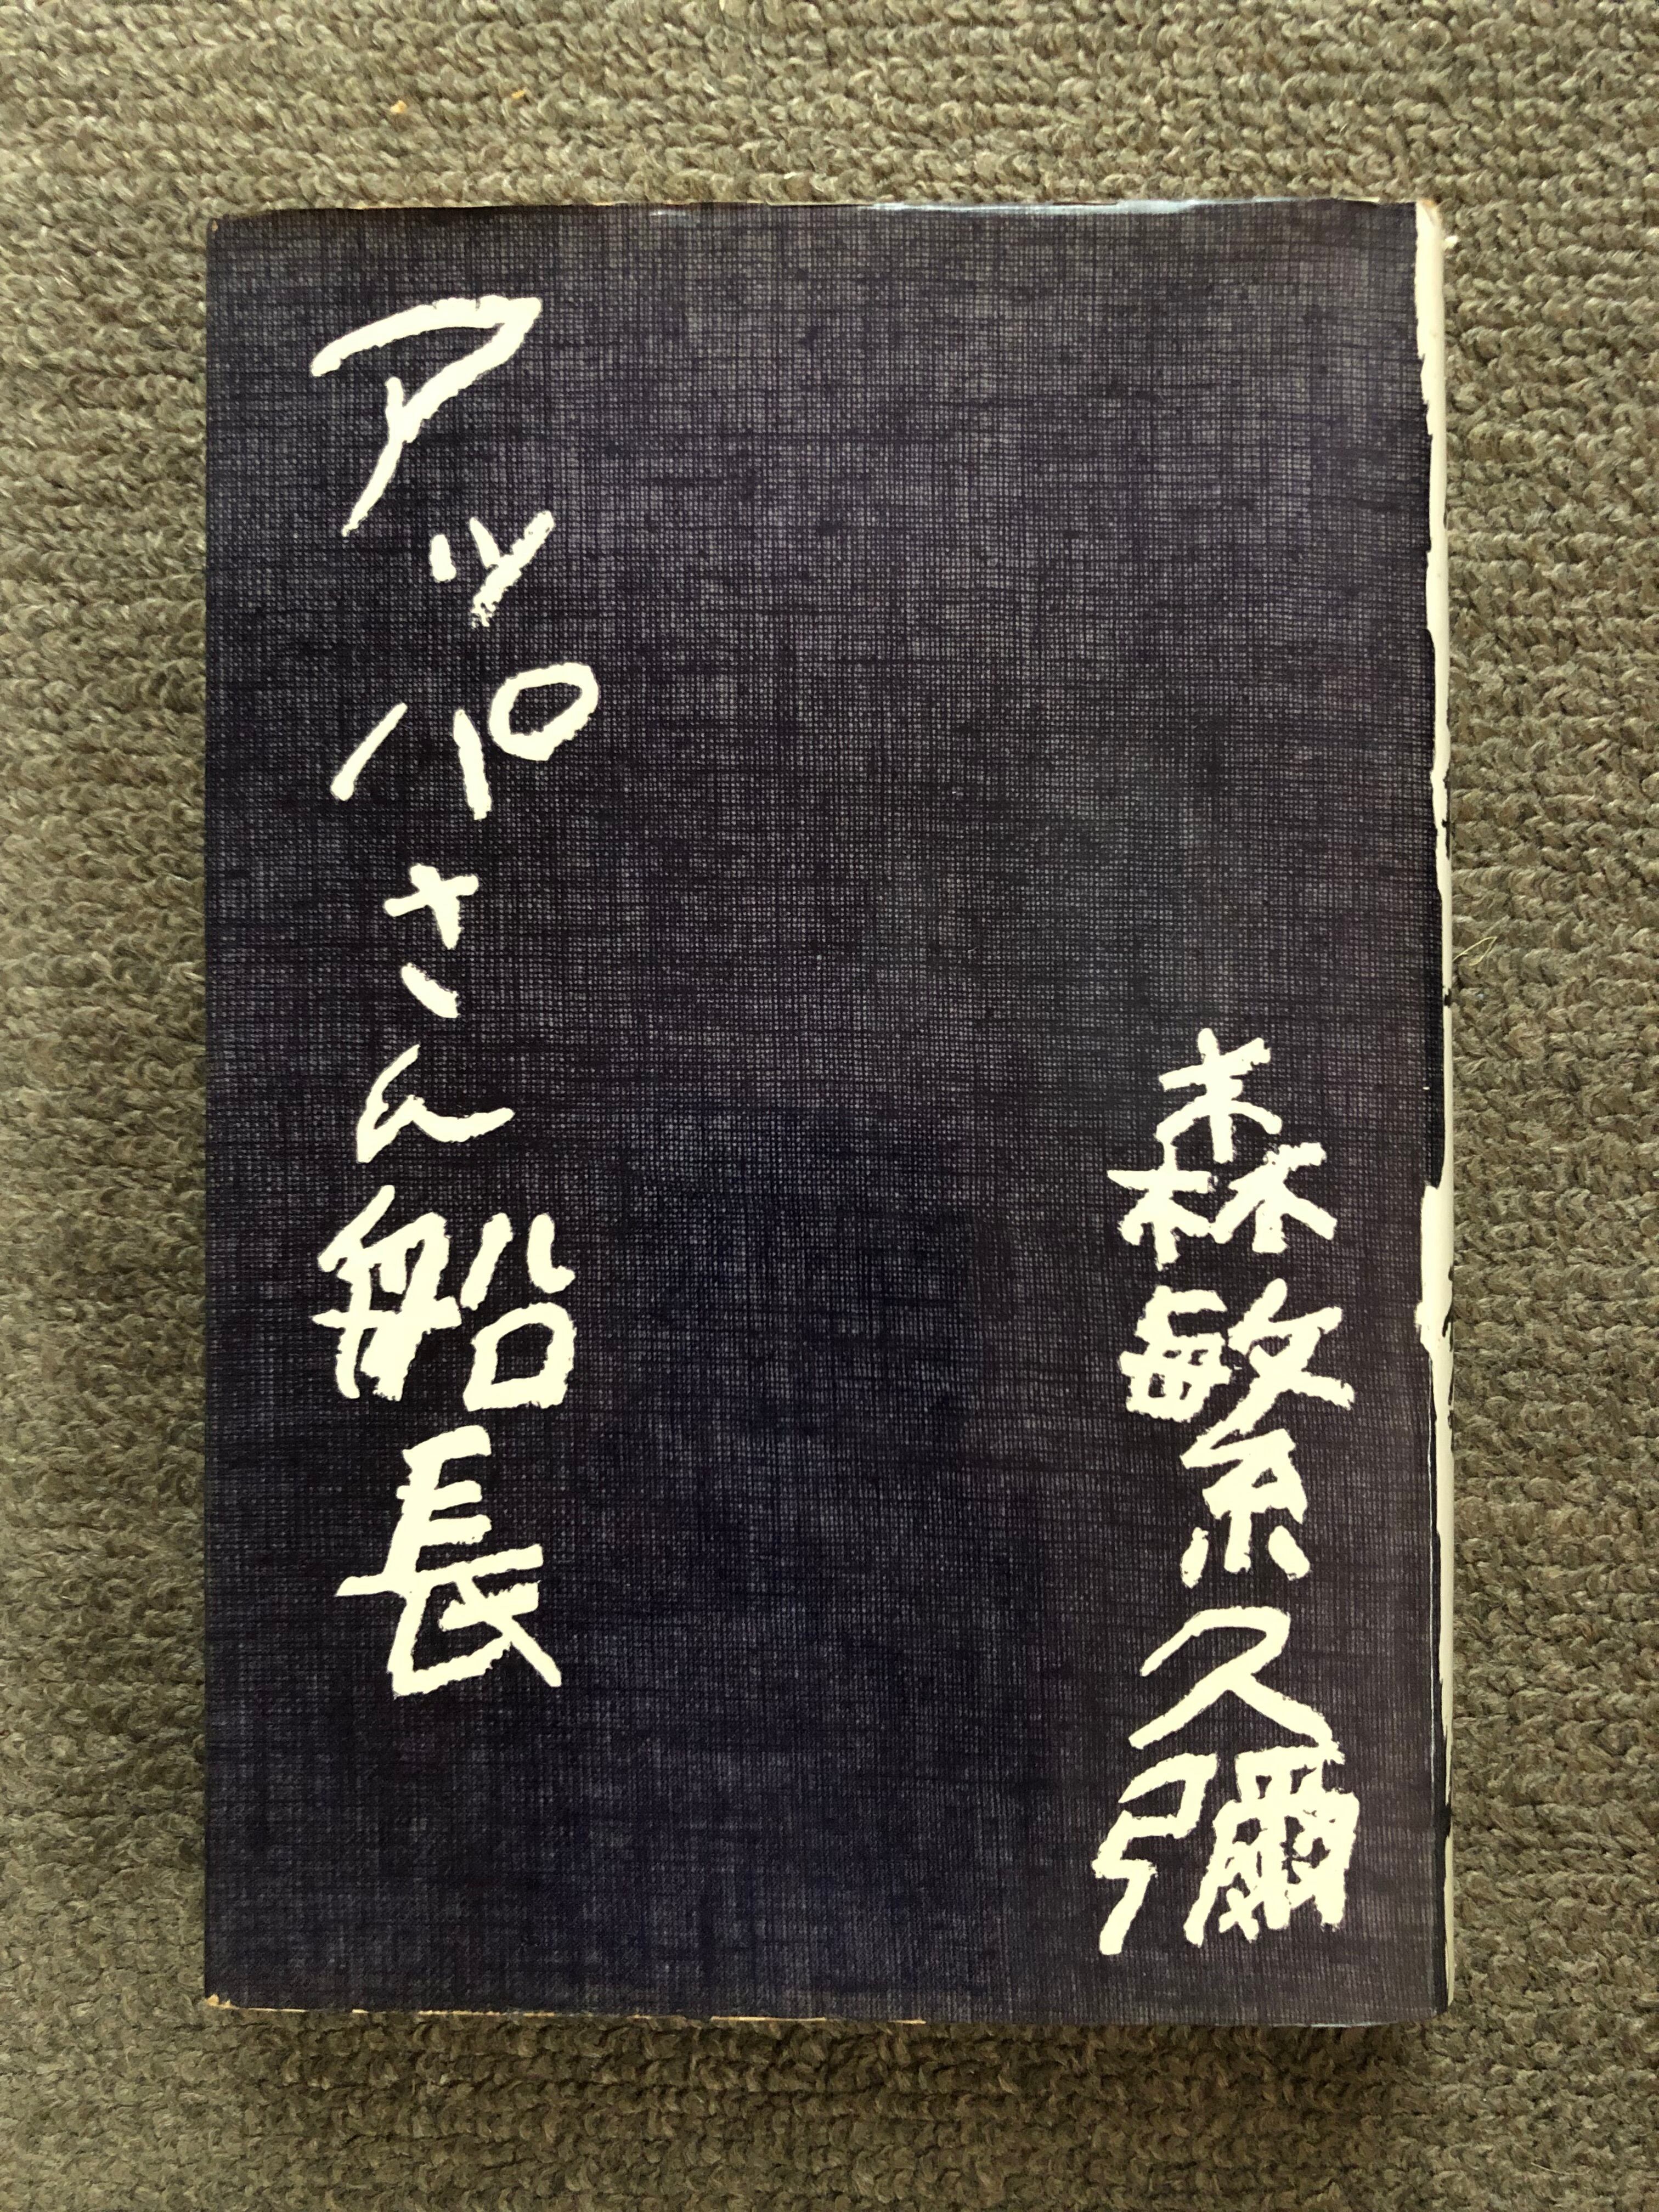 森繁久彌
アッパさん船長